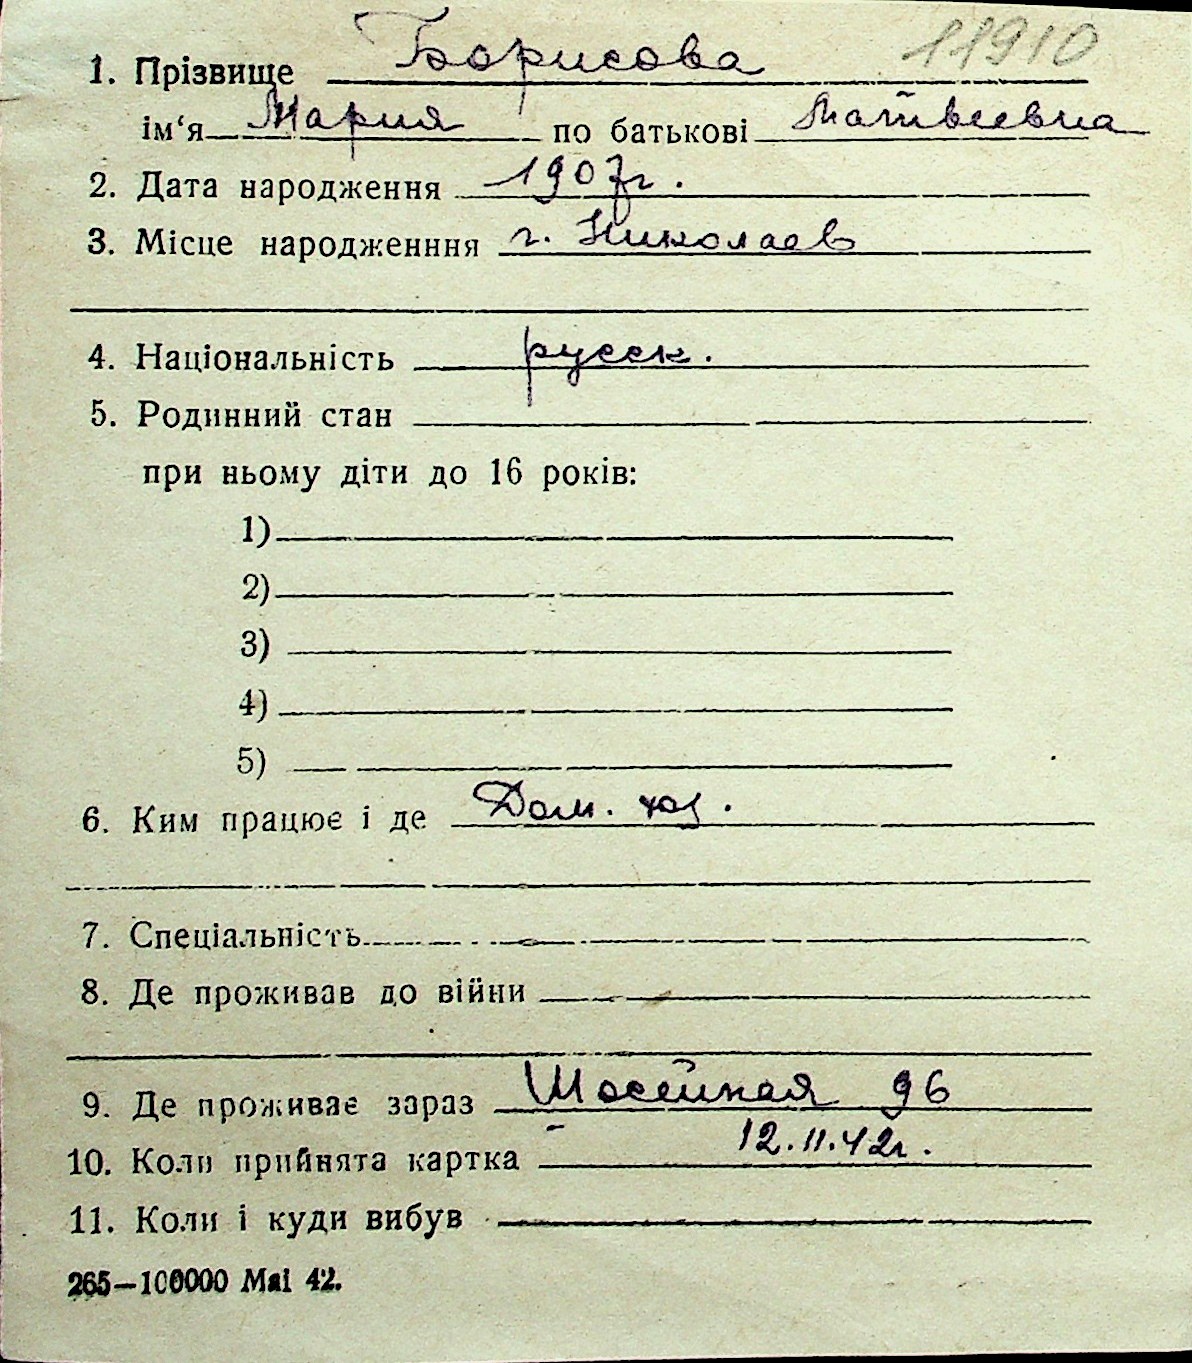 11910
1. Прізвище Борисова
ім'я Мария по батькові Матвеевна
2. Дата народження 1907г.
3. Місце народженння г. Николаев
4. Національність русск.
5. Родинний стан
при ньому діти до 16 років:
1)
2)
3)
4)
5)
6. Ким працює і де Дом. хоз.
7. Спеціальність
8. Де проживав до війни
9. Де проживає зараз Шосейная 96
10. Коли прийнята картка 12.11.42г.
11. Коли і куди вибув
265—100000 Mai 42.